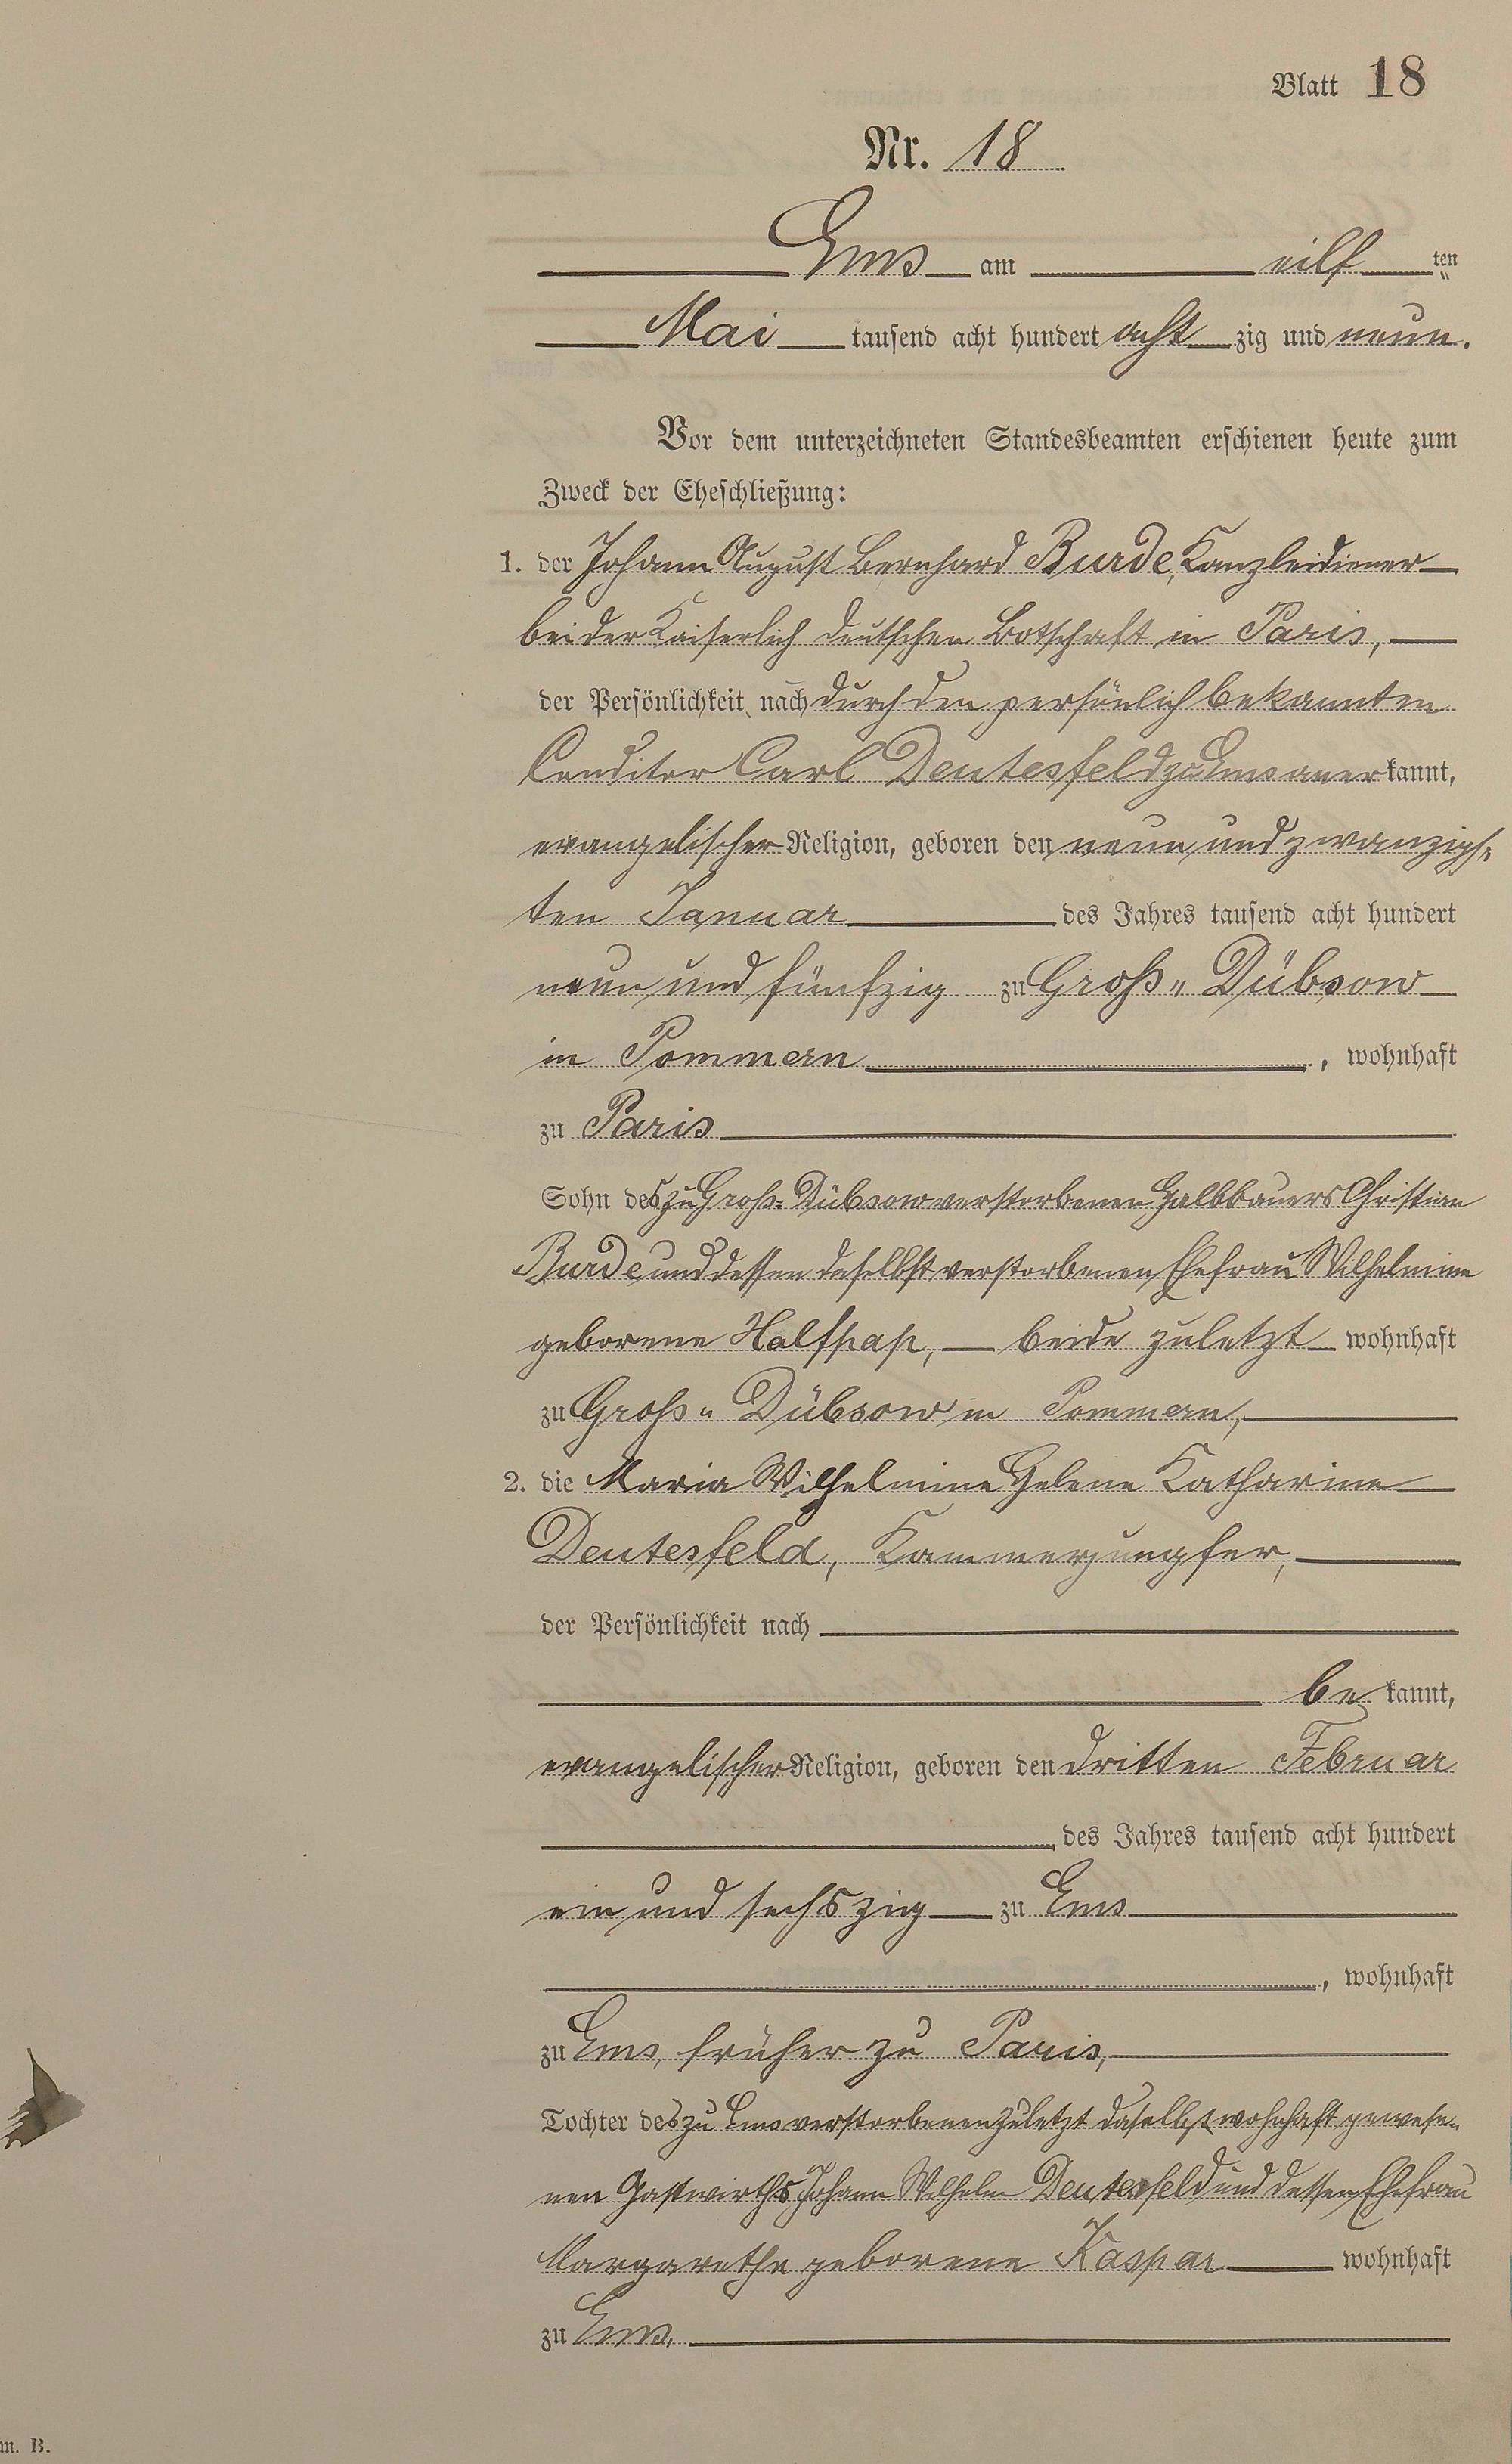 Blatt 18
Nr. 18
Ems am eilf ten
Mai tausend acht hundert acht zig und neun.
Vor dem unterzeichneten Standesbeamten erschienen heute zum
Zweck der Eheschließung:
1. der Johann August Bernhard Burde, Kanzleidiener
bei der Kaiserlich deutschen Botschaft in Paris,
der Persönlichkeit nach durch den persönlich bekannten
Conditor Carl Deutesfeld zu Ems aner kannt,
evangelischer Religion, geboren den neun und zwanzigs-
ten Januar des Jahres tausend acht hundert
neun und fünfzig zu Groß- Dübsow
in Pommern, wohnhaft
zu Paris
Sohn des zu Groß-Dübsow verstorbenen Halbbauers Christian
Burde und dessen daselbst verstorbenen Ehefrau Wilhelmine
geborene Halfpap, beide zuletzt wohnhaft
zu Groß- Dübsow in Pommern,
2. die Maria Wilhelmine Helene Katharine
Deutesfeld, Kammerjungfer,
der Persönlichkeit nach
be kannt,
evangelischer Religion, geboren den dritten Februar
des Jahres tausend acht hundert
ein und sechszig zu Ems
, wohnhaft
zu Ems, früher zu Paris,
Tochter des zu Ems verstorbenen zuletzt daselbst wohnhaft gewese-
nen Gastwirths Johann Wilhelm Deutesfeld und dessen Ehefrau
Margarethe geborene Kaspar wohnhaft
zu Ems.
m. B.